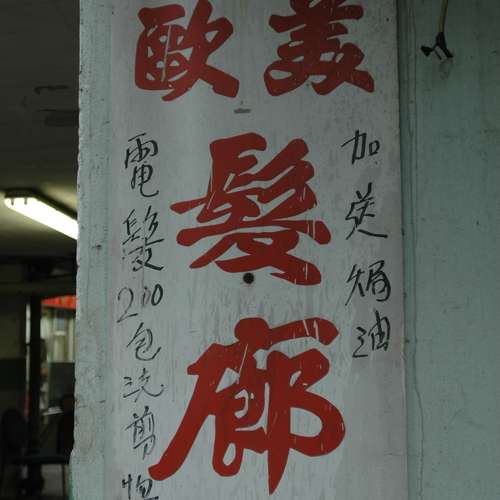 歐美
髮
廊
加送焗油
電髮200包洗剪